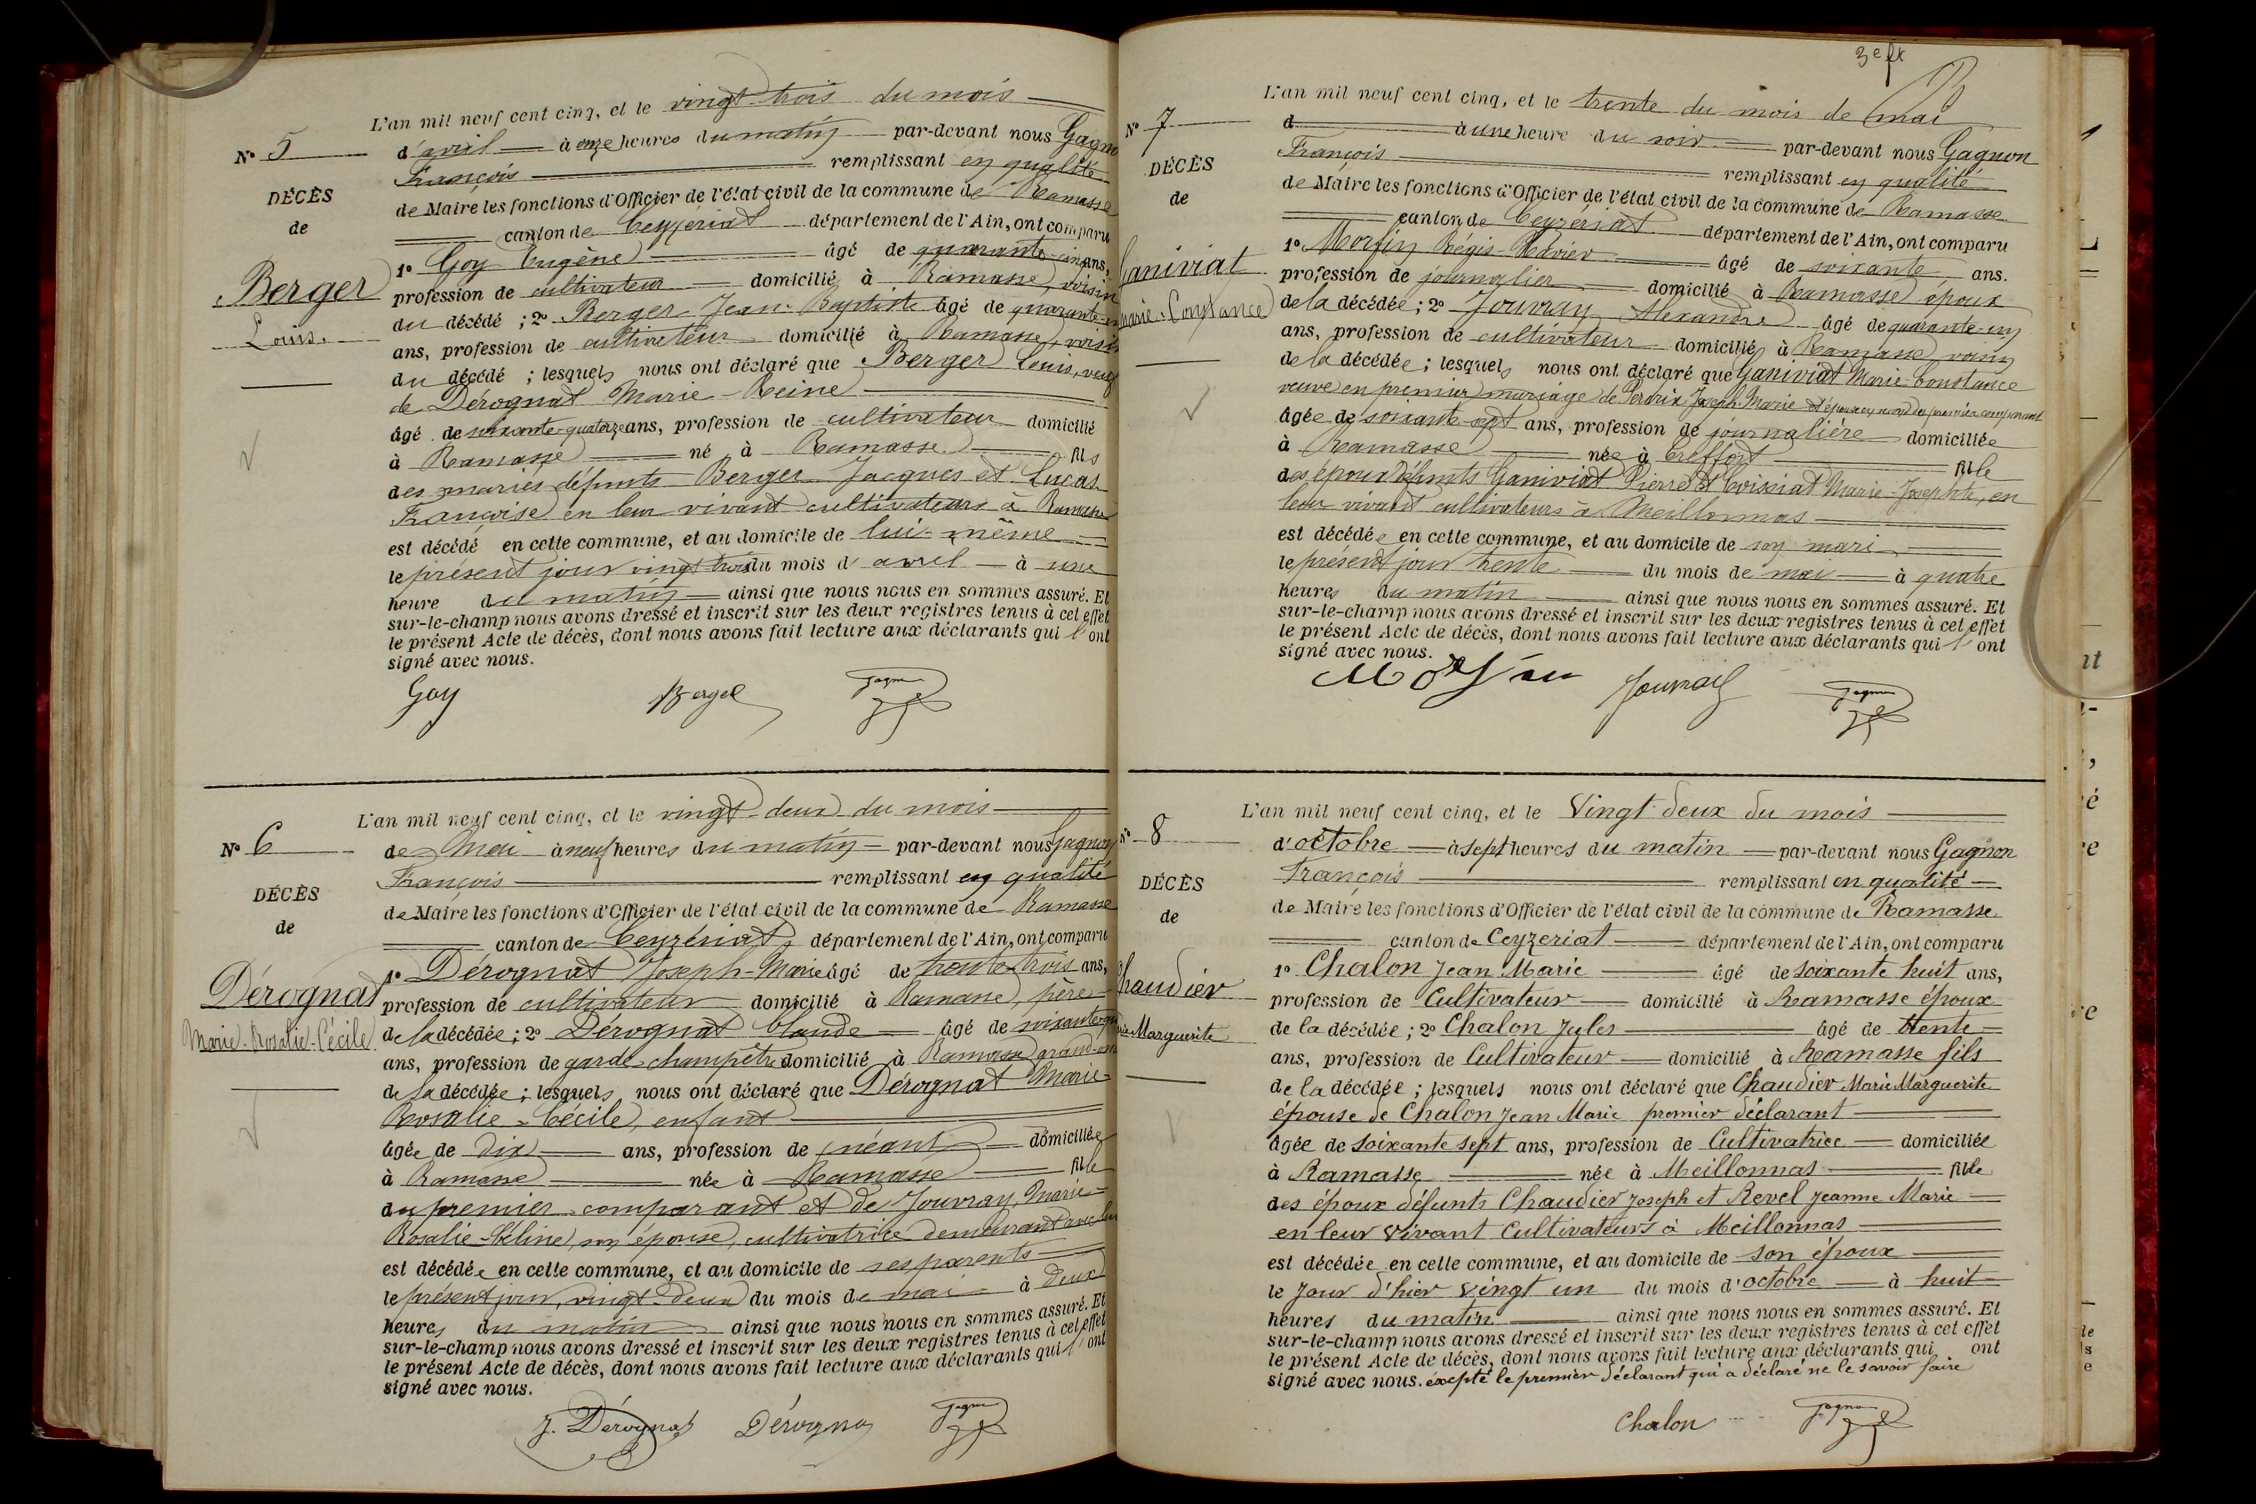 N° 5
DÉCÈS
de
Berger
Louis.
L'an mil neuf cent cinq, et le vingt-trois du mois
d'avril à onze heures du matin par-devant nous
François remplissant en qualité
de Maire les fonctions d'Officier de l'état civil de la commune de Ramasse
canton de Ceyzériat département de l'Ain, ont comparu
1° Goy Eugène âgé de quarante-cinq ans,
profession de cultivateur domicilié à Ramasse, voisin
du décédé ; 2° Berger Jean-Baptiste âgé de
ans, profession de cultivateur domicilié à Ramasse, voisin
du décédé ; lesquels nous ont déclaré que Berger Louis, veuf
de Dérognat Marie-Reine
âgé de soixante-quatorze ans, profession de cultivateur domicilié
à Ramasse né à Ramasse fils
des mariés défunts Berger Jacques et Lucas
Françoise en leur vivant cultivateurs à Ramasse
est décédé en cette commune, et au domicile de lui-même
le présent jour vingt-trois du mois d'avril à une
heure du matin ainsi que nous nous en sommes assuré. Et
sur-le-champ nous avons dressé et inscrit sur les deux registres tenus à cet effet
le présent Acte de décès, dont nous avons fait lecture aux déclarants qui l'ont
signé avec nous.
Goy Berger Gagnon
N° 6
DÉCÈS
de
Dérognat
Marie-Rosalie-Cécile
L'an mil neuf cent cinq, et le vingt-deux du mois
de Mai à neuf heures du matin par-devant nous Gagnon
François remplissant en qualité
de Maire les fonctions d'Officier de l'état civil de la commune de Ramasse
canton de Ceyzériat, département de l'Ain, ont comparu
1° Dérognat Joseph-Marie âgé de trente-trois ans,
profession de cultivateur domicilié à Ramasse, père
de la décédée ; 2° Dérognat Claude âgé de
ans, profession de garde-champêtre domicilié à Ramasse
de la décédée ; lesquels nous ont déclaré que Dérognat Marie-
Rosalie-Cécile, enfant
âgée de dix ans, profession de néant domiciliée
à Ramasse née à Ramasse fille
du premier comparant et de Jouvray, Marie-
Rosalie-Céline, son épouse, cultivatrice demeurant avec lui
est décédée en cette commune, et au domicile de ses parents
le présent jour, vingt-deux du mois de mai à deux
heures du matin ainsi que nous nous en sommes assuré. Et
sur-le-champ nous avons dressé et inscrit sur les deux registres tenus à cet effet
le présent Acte de décès, dont nous avons fait lecture aux déclarants qui l'ont
signé avec nous.
J. Dérognat Dérognat Gagnon
3e
N° 7
DÉCÈS
de
Ganiviat
Marie-Constance
L'an mil neuf cent cinq, et le trente du mois de mai
d à une heure du soir par-devant nous Gagnon
François remplissant en qualité
de Maire les fonctions d'Officier de l'état civil de la commune de Ramasse
canton de Ceyzériat département de l'Ain, ont comparu
1° Morfin Régis-Xavier âgé de soixante ans.
profession de journalier domicilié à Ramasse époux
de la décédée ; 2° Jouvray Alexandre âgé de quarante-un
ans, profession de cultivateur domicilié à Ramasse, voisin
de la décédée ; lesquels nous ont déclaré que Ganiviat Marie-Constance
veuve en premier mariage de Perdrix Joseph-Marie et épouse en second du premier comparant
âgée de soixante-sept ans, profession de journalière domiciliée
à Ramasse née à Treffort fille
des époux défunts Ganiviat Pierre et Coissiat Marie-Josephte, en
leur vivant cultivateurs à Meillonnas
est décédée en cette commune, et au domicile de son mari
le présent jour trente du mois de mai à quatre
heures du matin ainsi que nous nous en sommes assuré. Et
sur-le-champ nous avons dressé et inscrit sur les deux registres tenus à cet effet
le présent Acte de décès, dont nous avons fait lecture aux déclarants qui l'ont
signé avec nous.
Morfin Jouvray Gagnon
N° 8
DÉCÈS
de
Chaudier
Marguerite
L'an mil neuf cent cinq, et le Vingt deux du mois
d'octobre à sept heures du matin par-devant nous Gagnon
François remplissant en qualité
de Maire les fonctions d'Officier de l'état civil de la commune de Ramasse
canton de Ceyzeriat département de l'Ain, ont comparu
1° Chalon Jean Marie âgé de soixante huit ans,
profession de Cultivateur domicilié à Ramasse époux
de la décédée ; 2° Chalon Jules âgé de trente
ans, profession de Cultivateur domicilié à Ramasse fils
de la décédée ; lesquels nous ont déclaré que Chaudier Marie Marguerite
épouse de Chalon Jean Marie premier déclarant
âgée de soixante sept ans, profession de Cultivatrice domiciliée
à Ramasse née à Meillonnas fille
des époux défunts Chaudier Joseph et Revel Jeanne Marie
en leur vivant Cultivateurs à Meillonnas
est décédée en cette commune, et au domicile de son époux
le jour d'hier vingt un du mois d'octobre à huit
heures du matin ainsi que nous nous en sommes assuré. Et
sur-le-champ nous avons dressé et inscrit sur les deux registres tenus à cet effet
le présent Acte de décès, dont nous avons fait lecture aux déclarants qui ont
signé avec nous. excepté le premier déclarant qui a déclaré ne le savoir faire
Chalon Gagnon